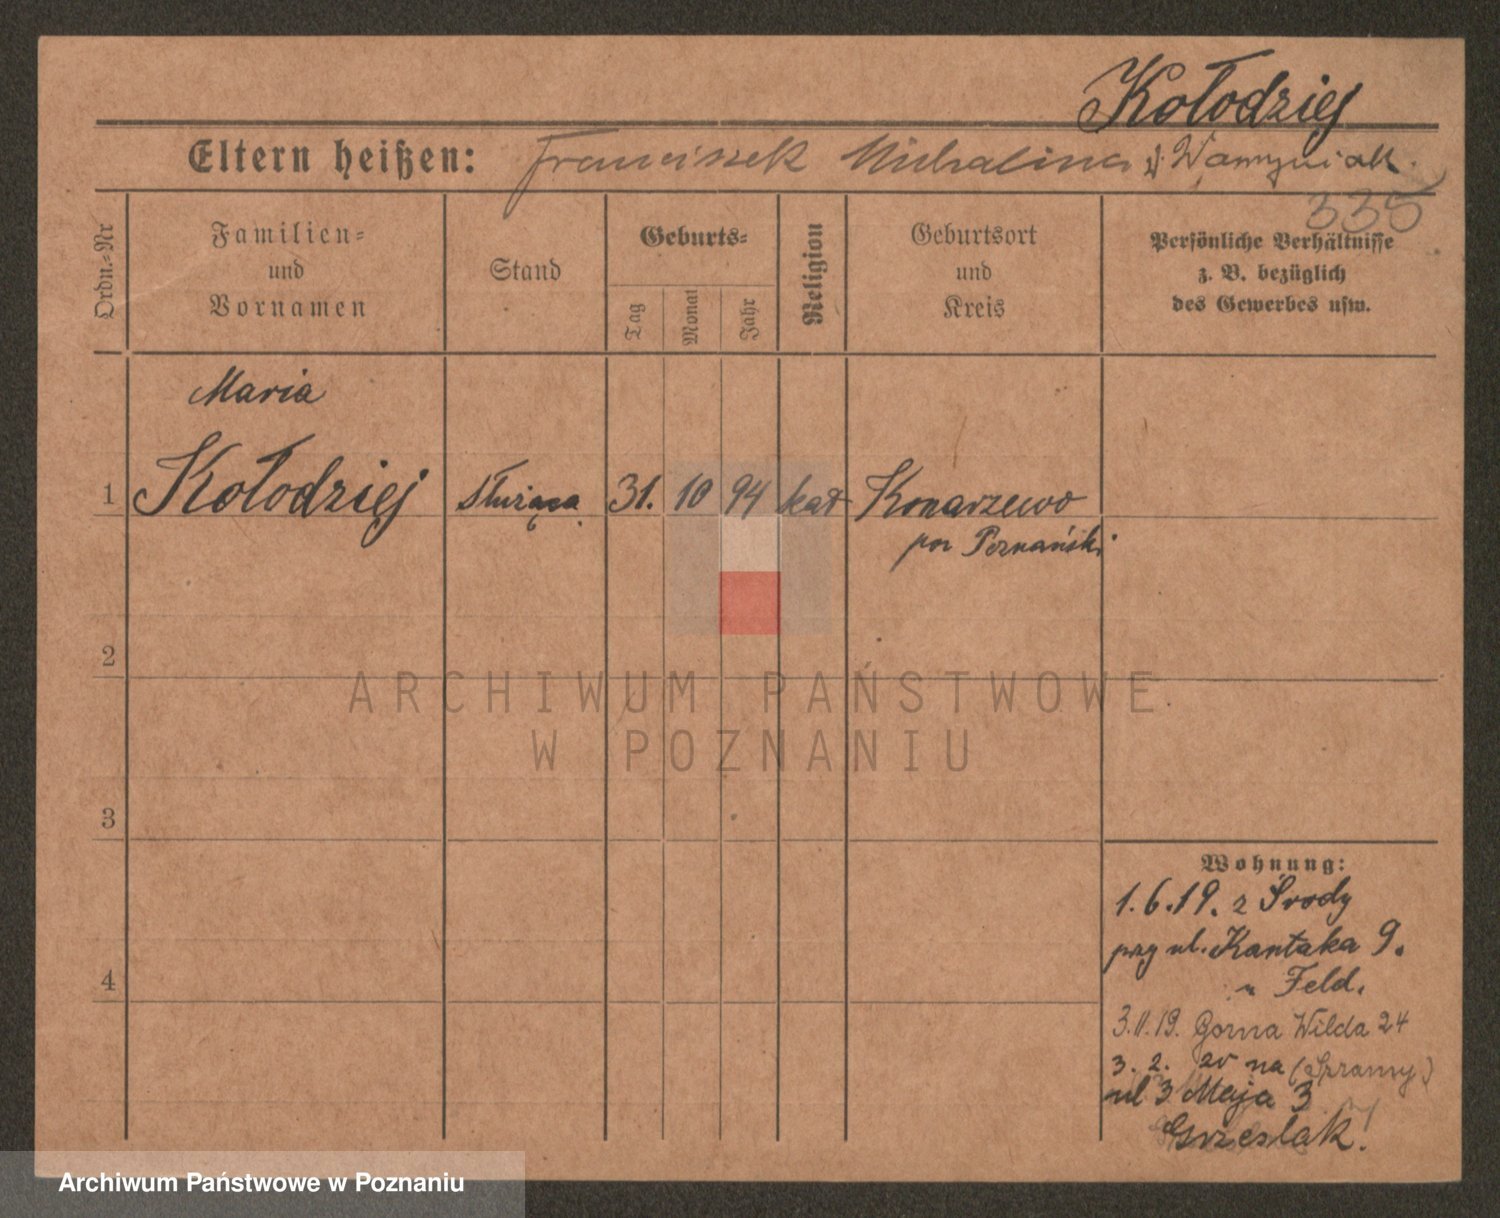 Kołodziej
Eltern heißen: Franciszek Michalina
335
Ordn.-Nr
Familien-
und
Vornamen
Stand
Geburts-
Tag
Monat
Jahr
Religion
Geburtsort
und
Kreis
Persönliche Verhältnisse
z. B. bezüglich
des Gewerbes usw.
Maria
1 Kołodziej służąca 31. 10 94 kat Konarzewo
Poznański
2
ARCHIWUM PAŃSTWOWE
W POZNANIU
3
Wohnung:
1.6.19. z Środy
przy ul. Kantaka 9.
u Feld.
4
3.11.19. Gorna Wilda 24
3. 2. 20 na
ul 3 Maja 3
Grzeslak.
Archiwum Państwowe w Poznaniu